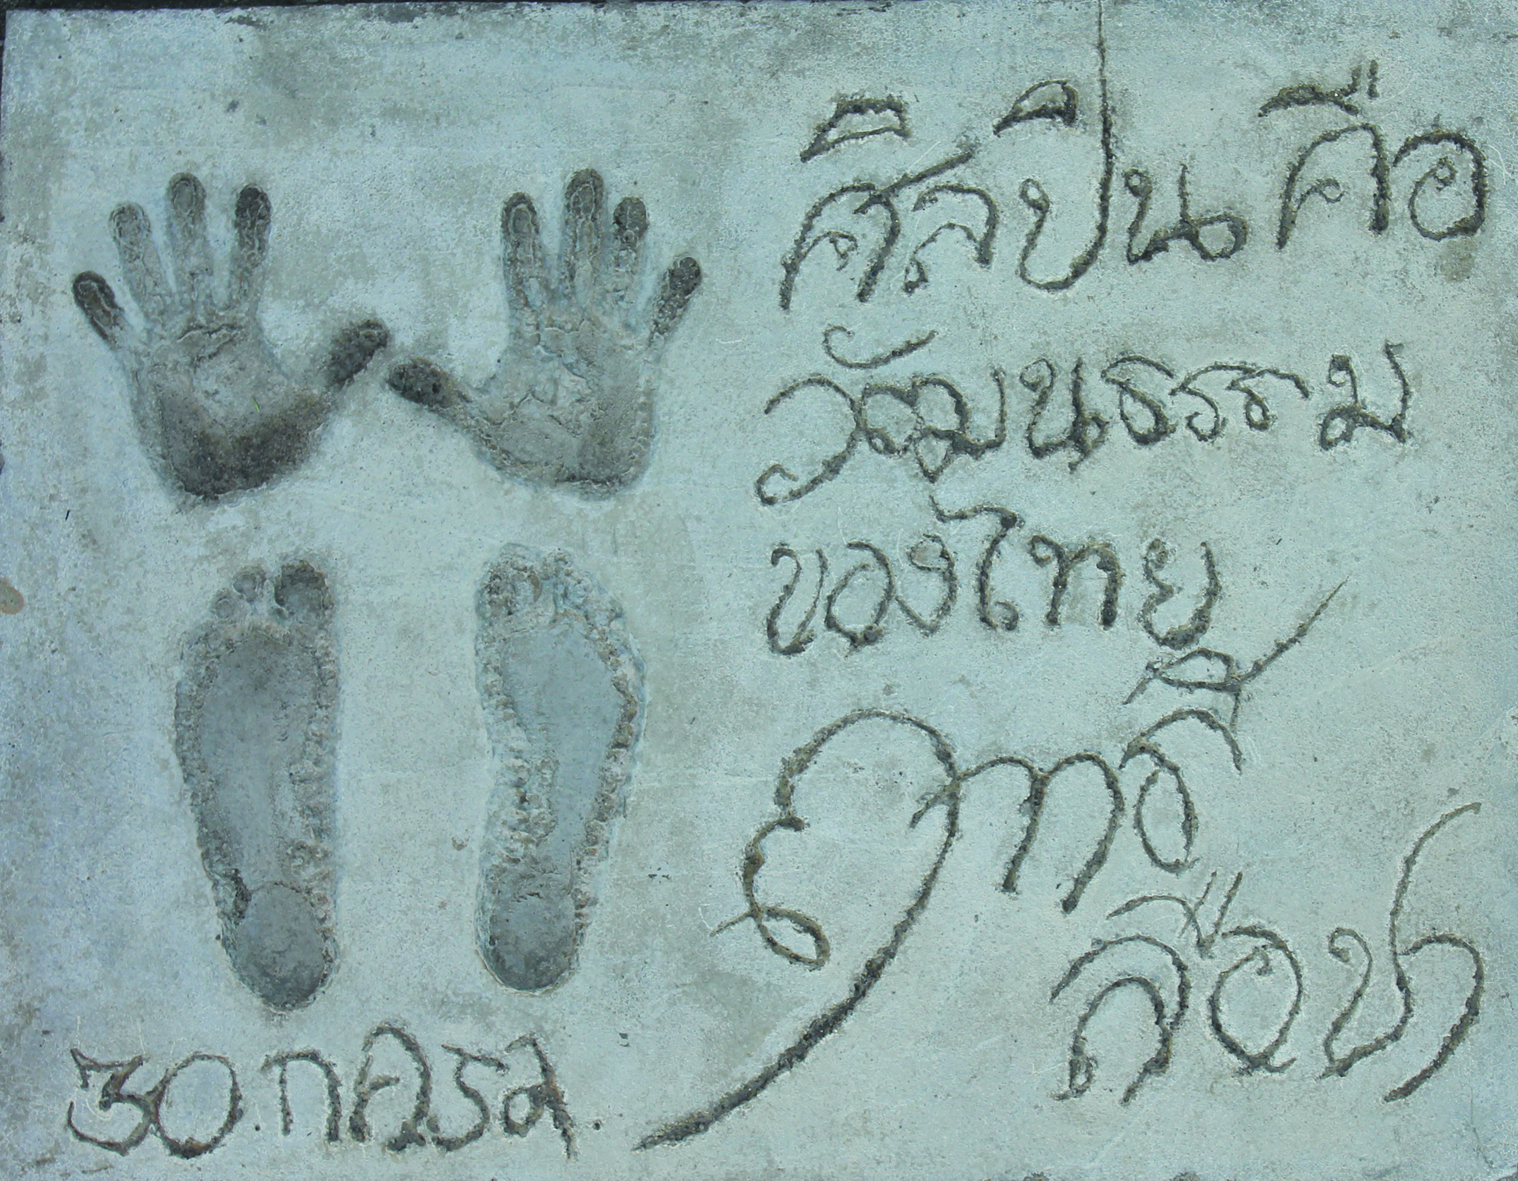 ศิลปิน คือ
วัฒนธรรม
ของไทย
ฤทธิ์
ลือชา
30.กค